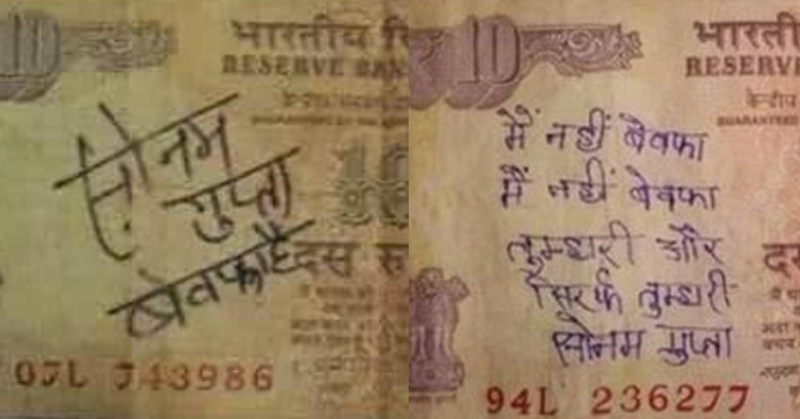 10
भारतीय रि
RESERVE BANK
सोनम
गुप्ता
बेवफा है
10
दस रु
07L 743986
10
भारती
RESERVE
केन्द्रीय
GUARANTEED
मैं नहीं बेवफा
मैं नहीं बेवफा
तुम्हारी और
सिर्फ तुम्हारी
सोनम गुप्ता
द
94L 236277